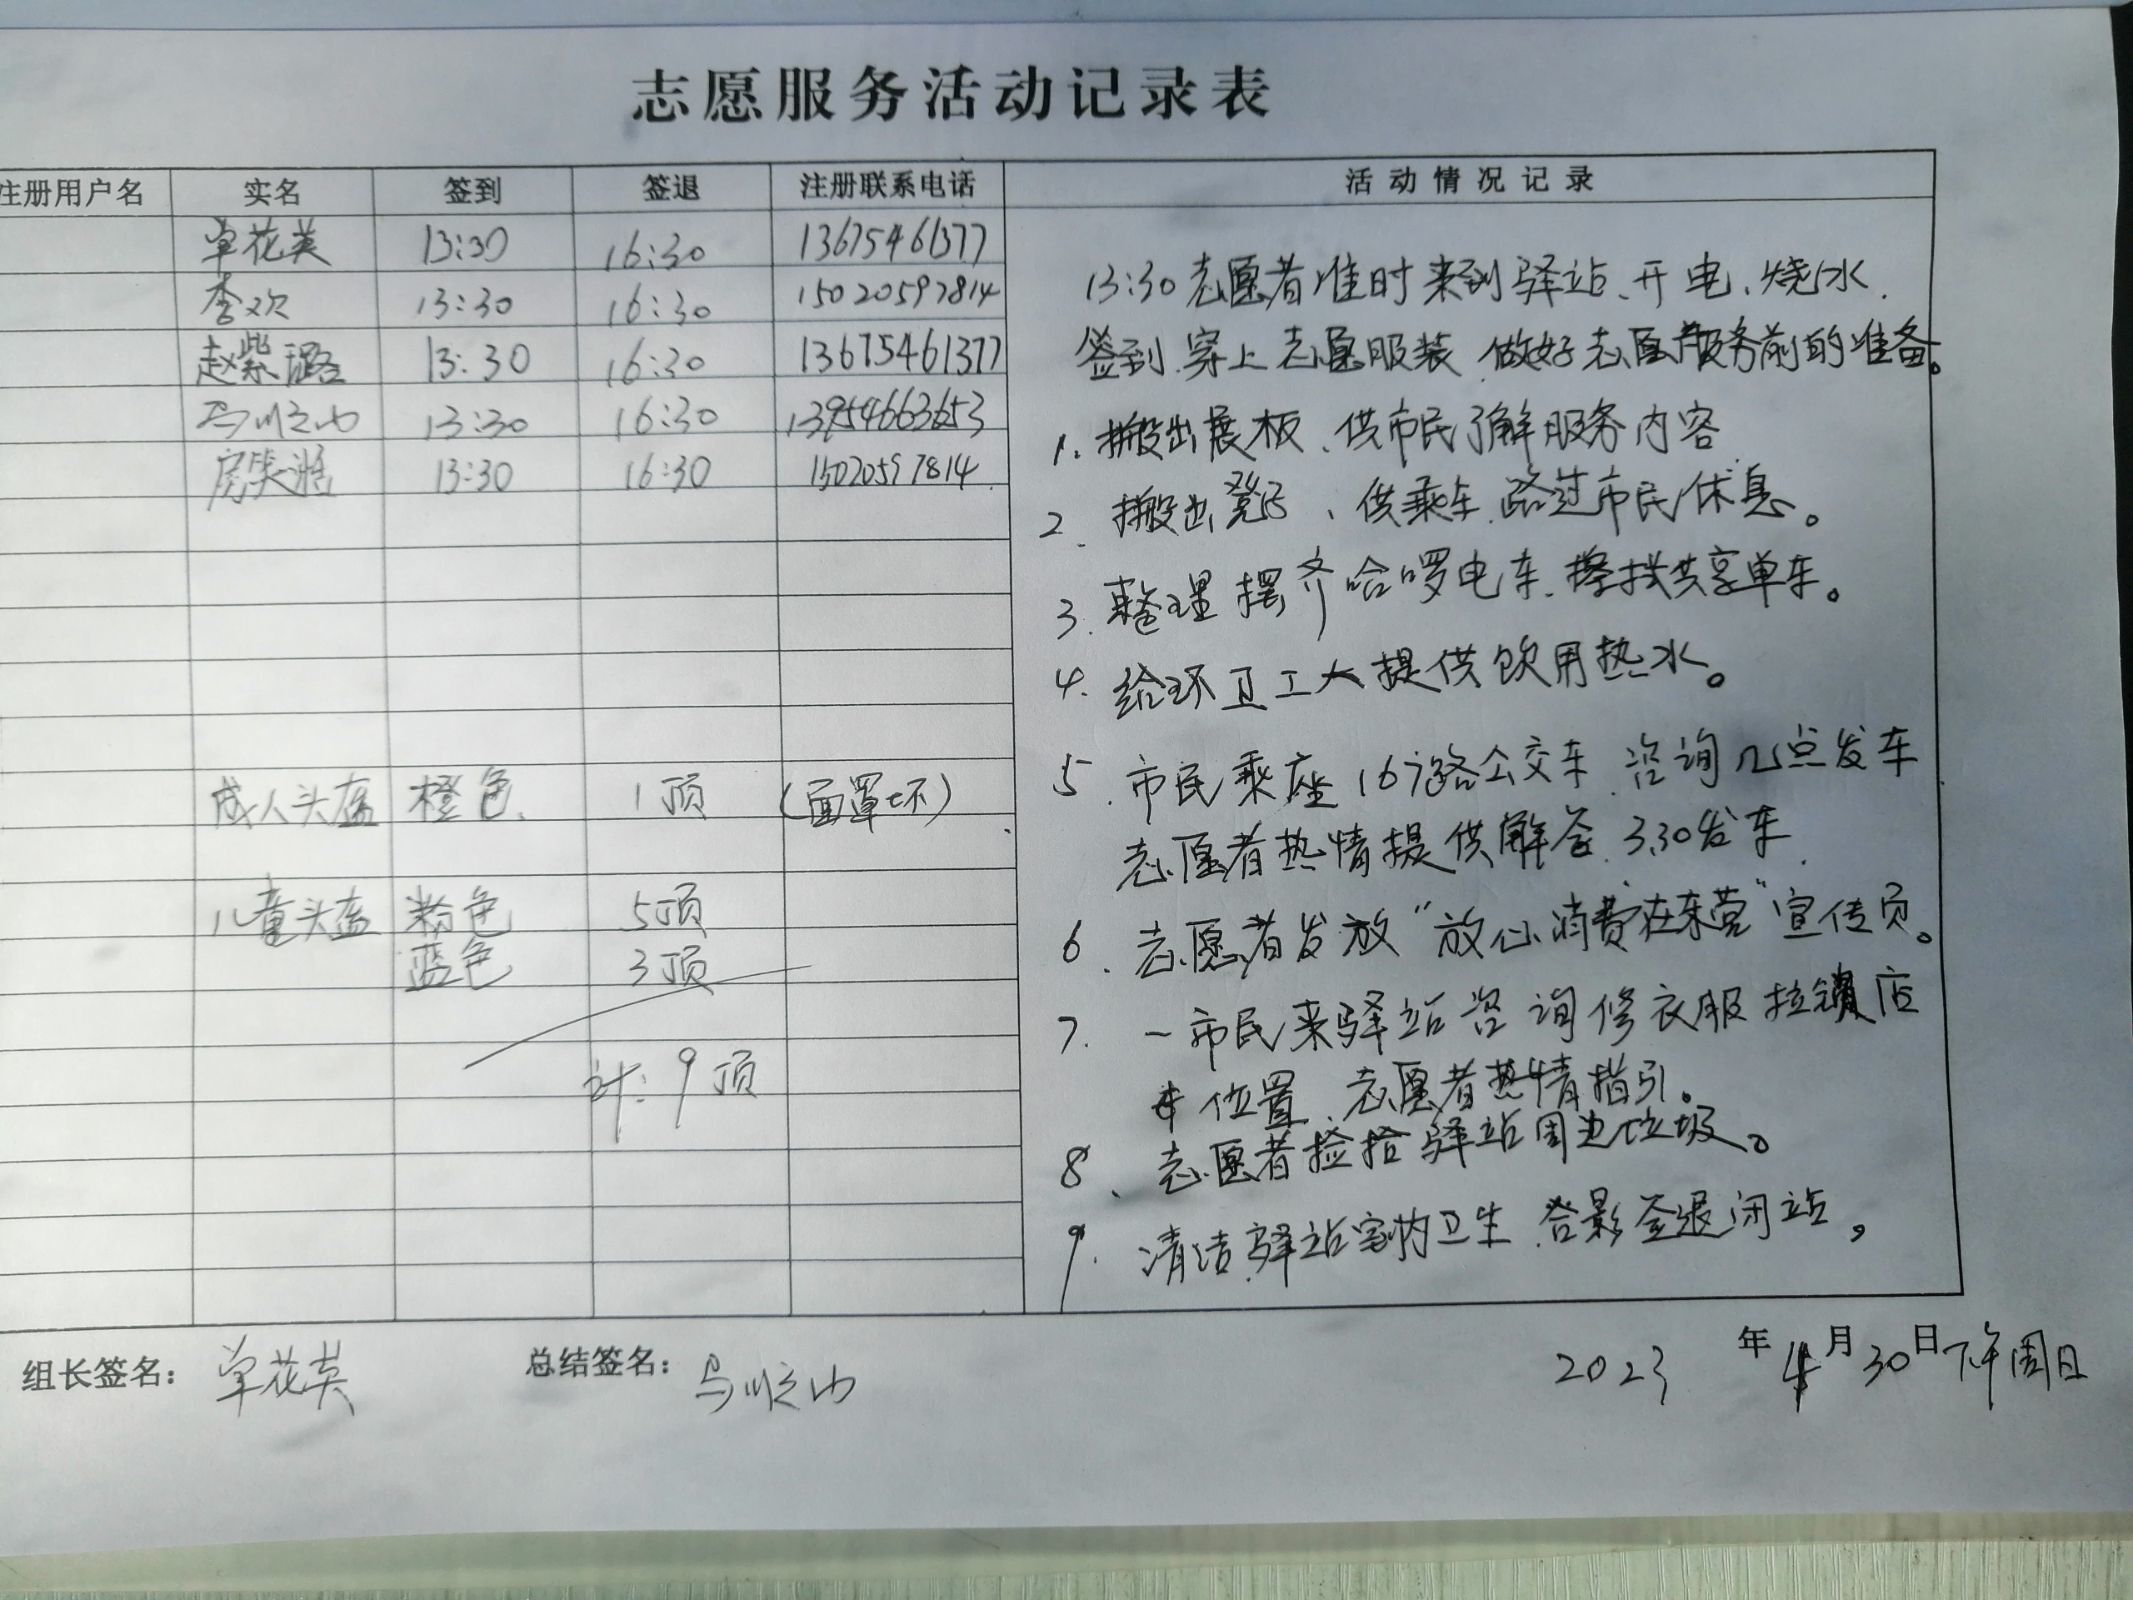 志愿服务活动记录表
注册用户名 实名 签到 签退 注册联系电话 活动情况记录
单花英 13:30 16:30 13675461377
李欢 13:30 16:30 15020597814
赵紫璐 13:30 16:30 13675461377
马顺之山 13:30 16:30 13954663653
13:30 16:30 15020597814
成人头盔 橙色. 1顶 (面罩坏)
儿童头盔 粉色 5顶
蓝色 3顶
计:9顶
13:30志愿者准时来到驿站、开电、烧水.
签到.穿上志愿服装.做好志愿服务前的准备。
1.搬出展板、供市民了解服务内容
2.搬出凳子、供乘车.路过市民休息。
3.整理摆齐哈啰电车.擦拭共享单车。
4.给环卫工人提供饮用热水。
5.市民乘座167路公交车.咨询几点发车
志愿者热情提供解答.3.30发车.
6、志愿者发放“放心消费在东营”宣传页。
7.一市民来驿站咨询修衣服拉锁店
位置、志愿者热情指引。
8、志愿者捡拾驿站周边垃圾。
9.清洁驿站室内卫生.合影签退闭站。
组长签名: 单花英 总结签名: 2023年4月30日下午周日